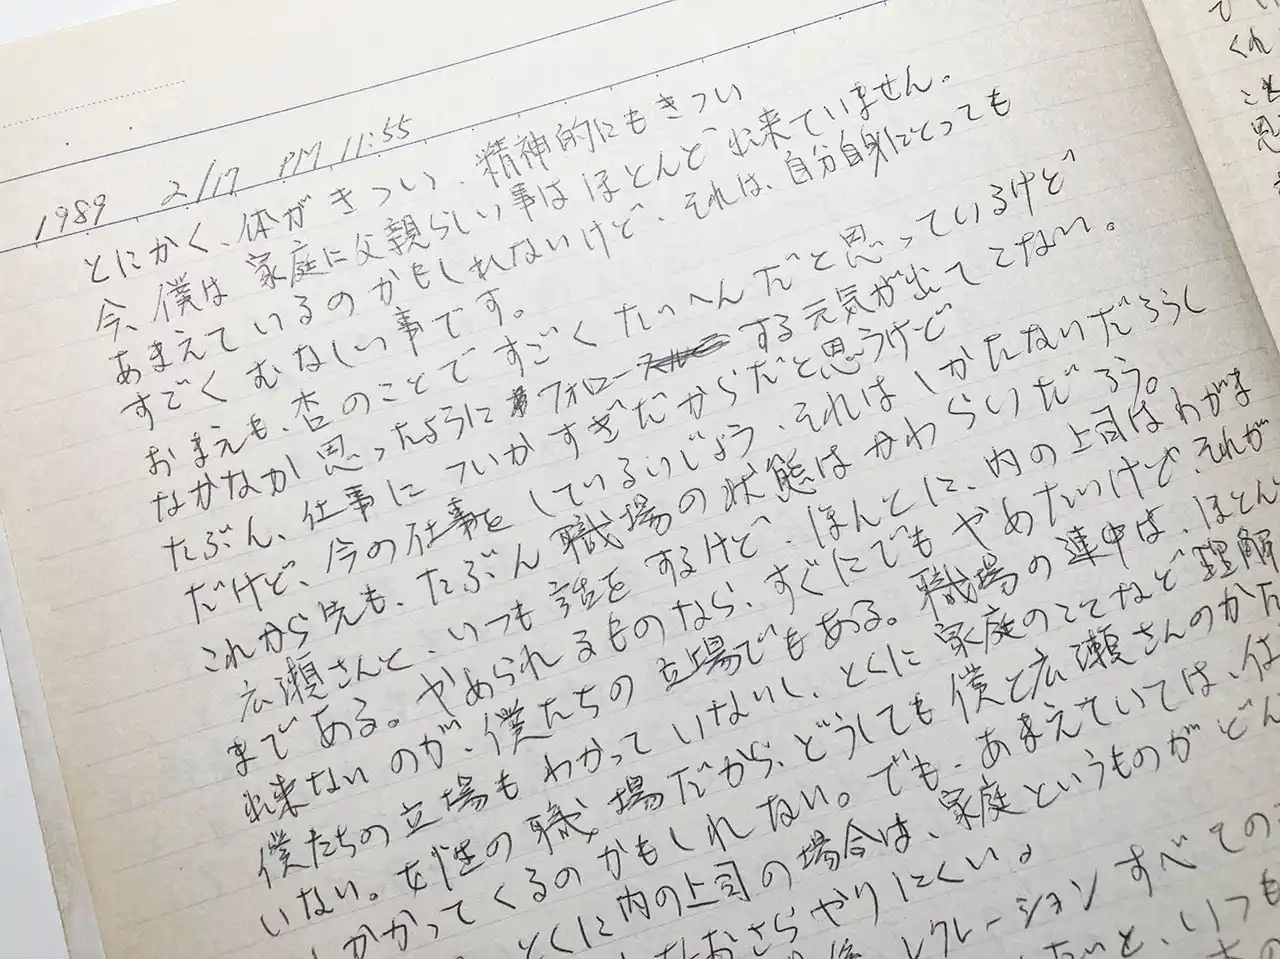 1989 2/17 PM 11:55
とにかく、体がきつい、精神的にもきつい
今、僕は家庭に父親らしい事はほとんど出来ていません。
あまえているのかもしれないけど、それは、自分自身にとっても
すごくむなしい事です。
おまえも、杏のことですごくたいへんだと思っているけど
なかなか思ったようにフォローする元気が出てこない。
たぶん、仕事についかすぎだからだと思うけど
だけど、今の仕事をしているいじょう、それはしかたないだろうし
これから先も、たぶん職場の状態はかわらいだろう。
広瀬さんと、いつも話をするけど、ほんとに、内の上司はわがま
まである。やめられるものなら、すぐにでもやめたいけど、それが
出来ないのが、僕たちの立場でもある。職場の連中は、ほとん
僕たちの立場もわかっていないし、とくに家庭のことなど理解
いない。女性の職場だから、どうしても僕と広瀬さんのかた
かかってくるのかもしれない。でも、あまえていては、仕
とくに内の上司の場合は、家庭というものがどん
なおさらやりにくい。
レクレーションすべての
ないと、いつも
くれ
思